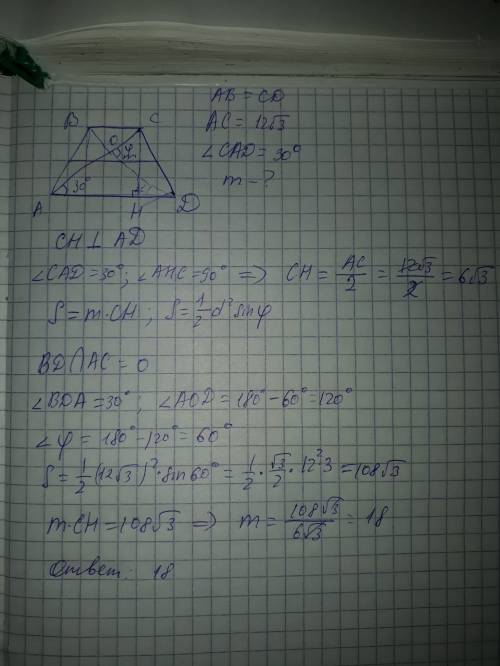 AB = CD
AC = 12√3
∠CAD = 30°
m - ?
B C
O φ
30°
A H D
CH ⊥ AD
∠CAD = 30°; ∠AHC = 90° ⇒ CH = AC/2 = 12√3/2 = 6√3
S = m·CH; S = 1/2 d² sin φ
BD ∩ AC = O
∠BDA = 30°; ∠AOD = 180° - 60° = 120°
∠φ = 180° - 120° = 60°
S = 1/2 (12√3)² · sin 60° = 1/2 · √3/2 · 12² · 3 = 108√3
m·CH = 108√3 ⇒ m = 108√3/6√3 = 18
Ответ: 18